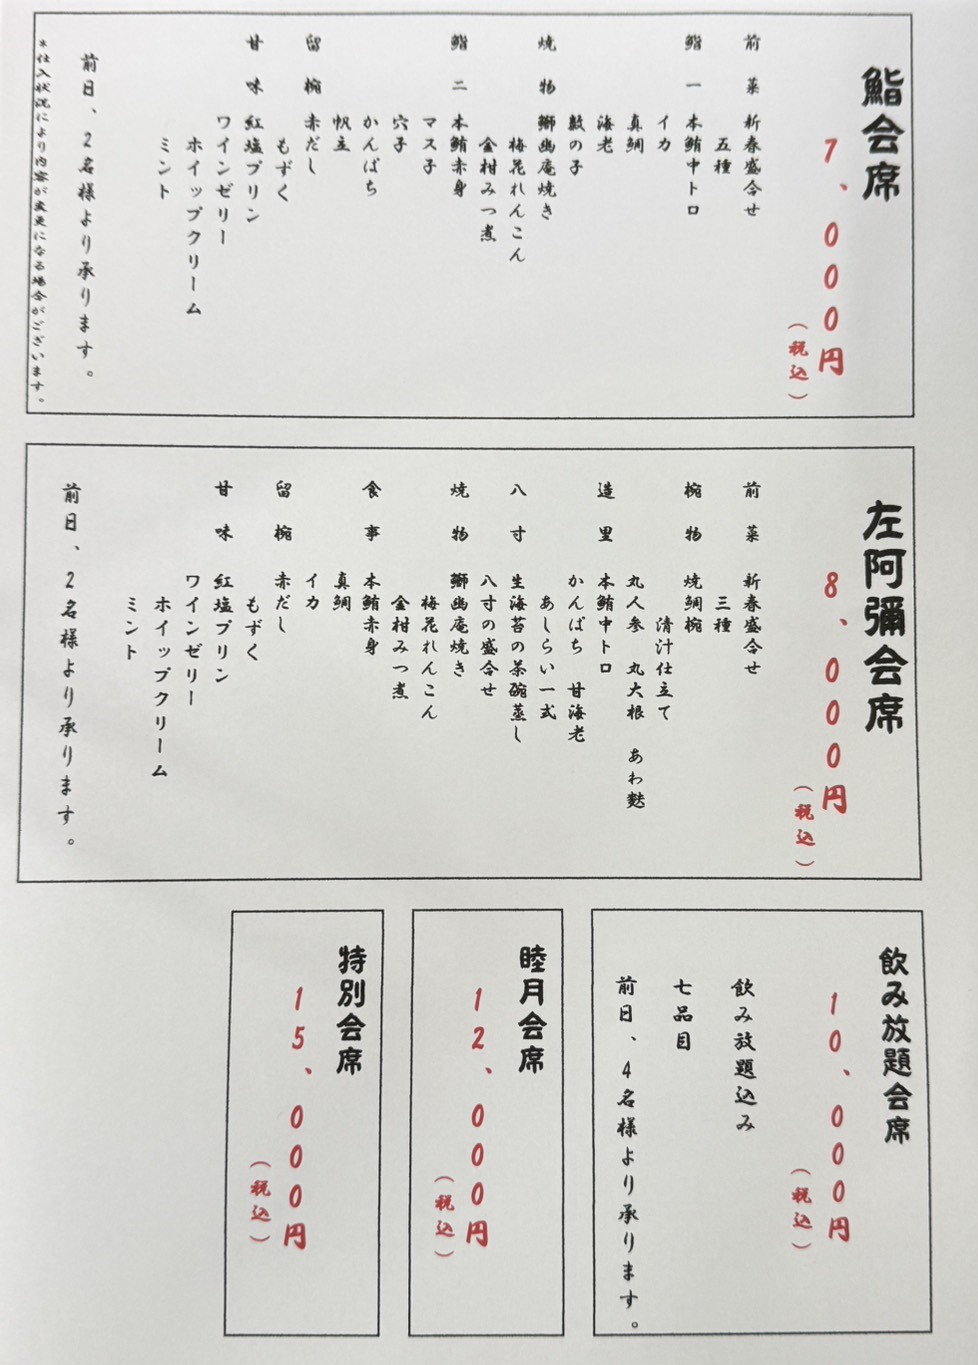 鮨会席
7、000円
（税込）
前菜 新春盛合せ
五種
鮨一 本鮪中トロ
イカ
真鯛
海老
数の子
焼物 鰤幽庵焼き
梅花れんこん
金柑みつ煮
鮨二 本鮪赤身
マス子
穴子
かんぱち
帆立
留椀 赤だし
もずく
甘味 紅塩プリン
ワインゼリー
ホイップクリーム
ミント
前日、2名様より承ります。
*仕入状況により内容が変更になる場合がございます。
左阿彌会席
8、000円
（税込）
前菜 新春盛合せ
三種
椀物 焼鯛椀
清汁仕立て
丸人参 丸大根 あわ麩
造里 本鮪中トロ
かんぱち 甘海老
あしらい一式
八寸 生海苔の茶碗蒸し
八寸の盛合せ
焼物 鰤幽庵焼き
梅花れんこん
金柑みつ煮
食事 本鮪赤身
真鯛
イカ
留椀 赤だし
もずく
甘味 紅塩プリン
ワインゼリー
ホイップクリーム
ミント
前日、2名様より承ります。
飲み放題会席
10、000円
（税込）
飲み放題込み
七品目
前日、4名様より承ります。
睦月会席
12、000円
（税込）
特別会席
15、000円
（税込）